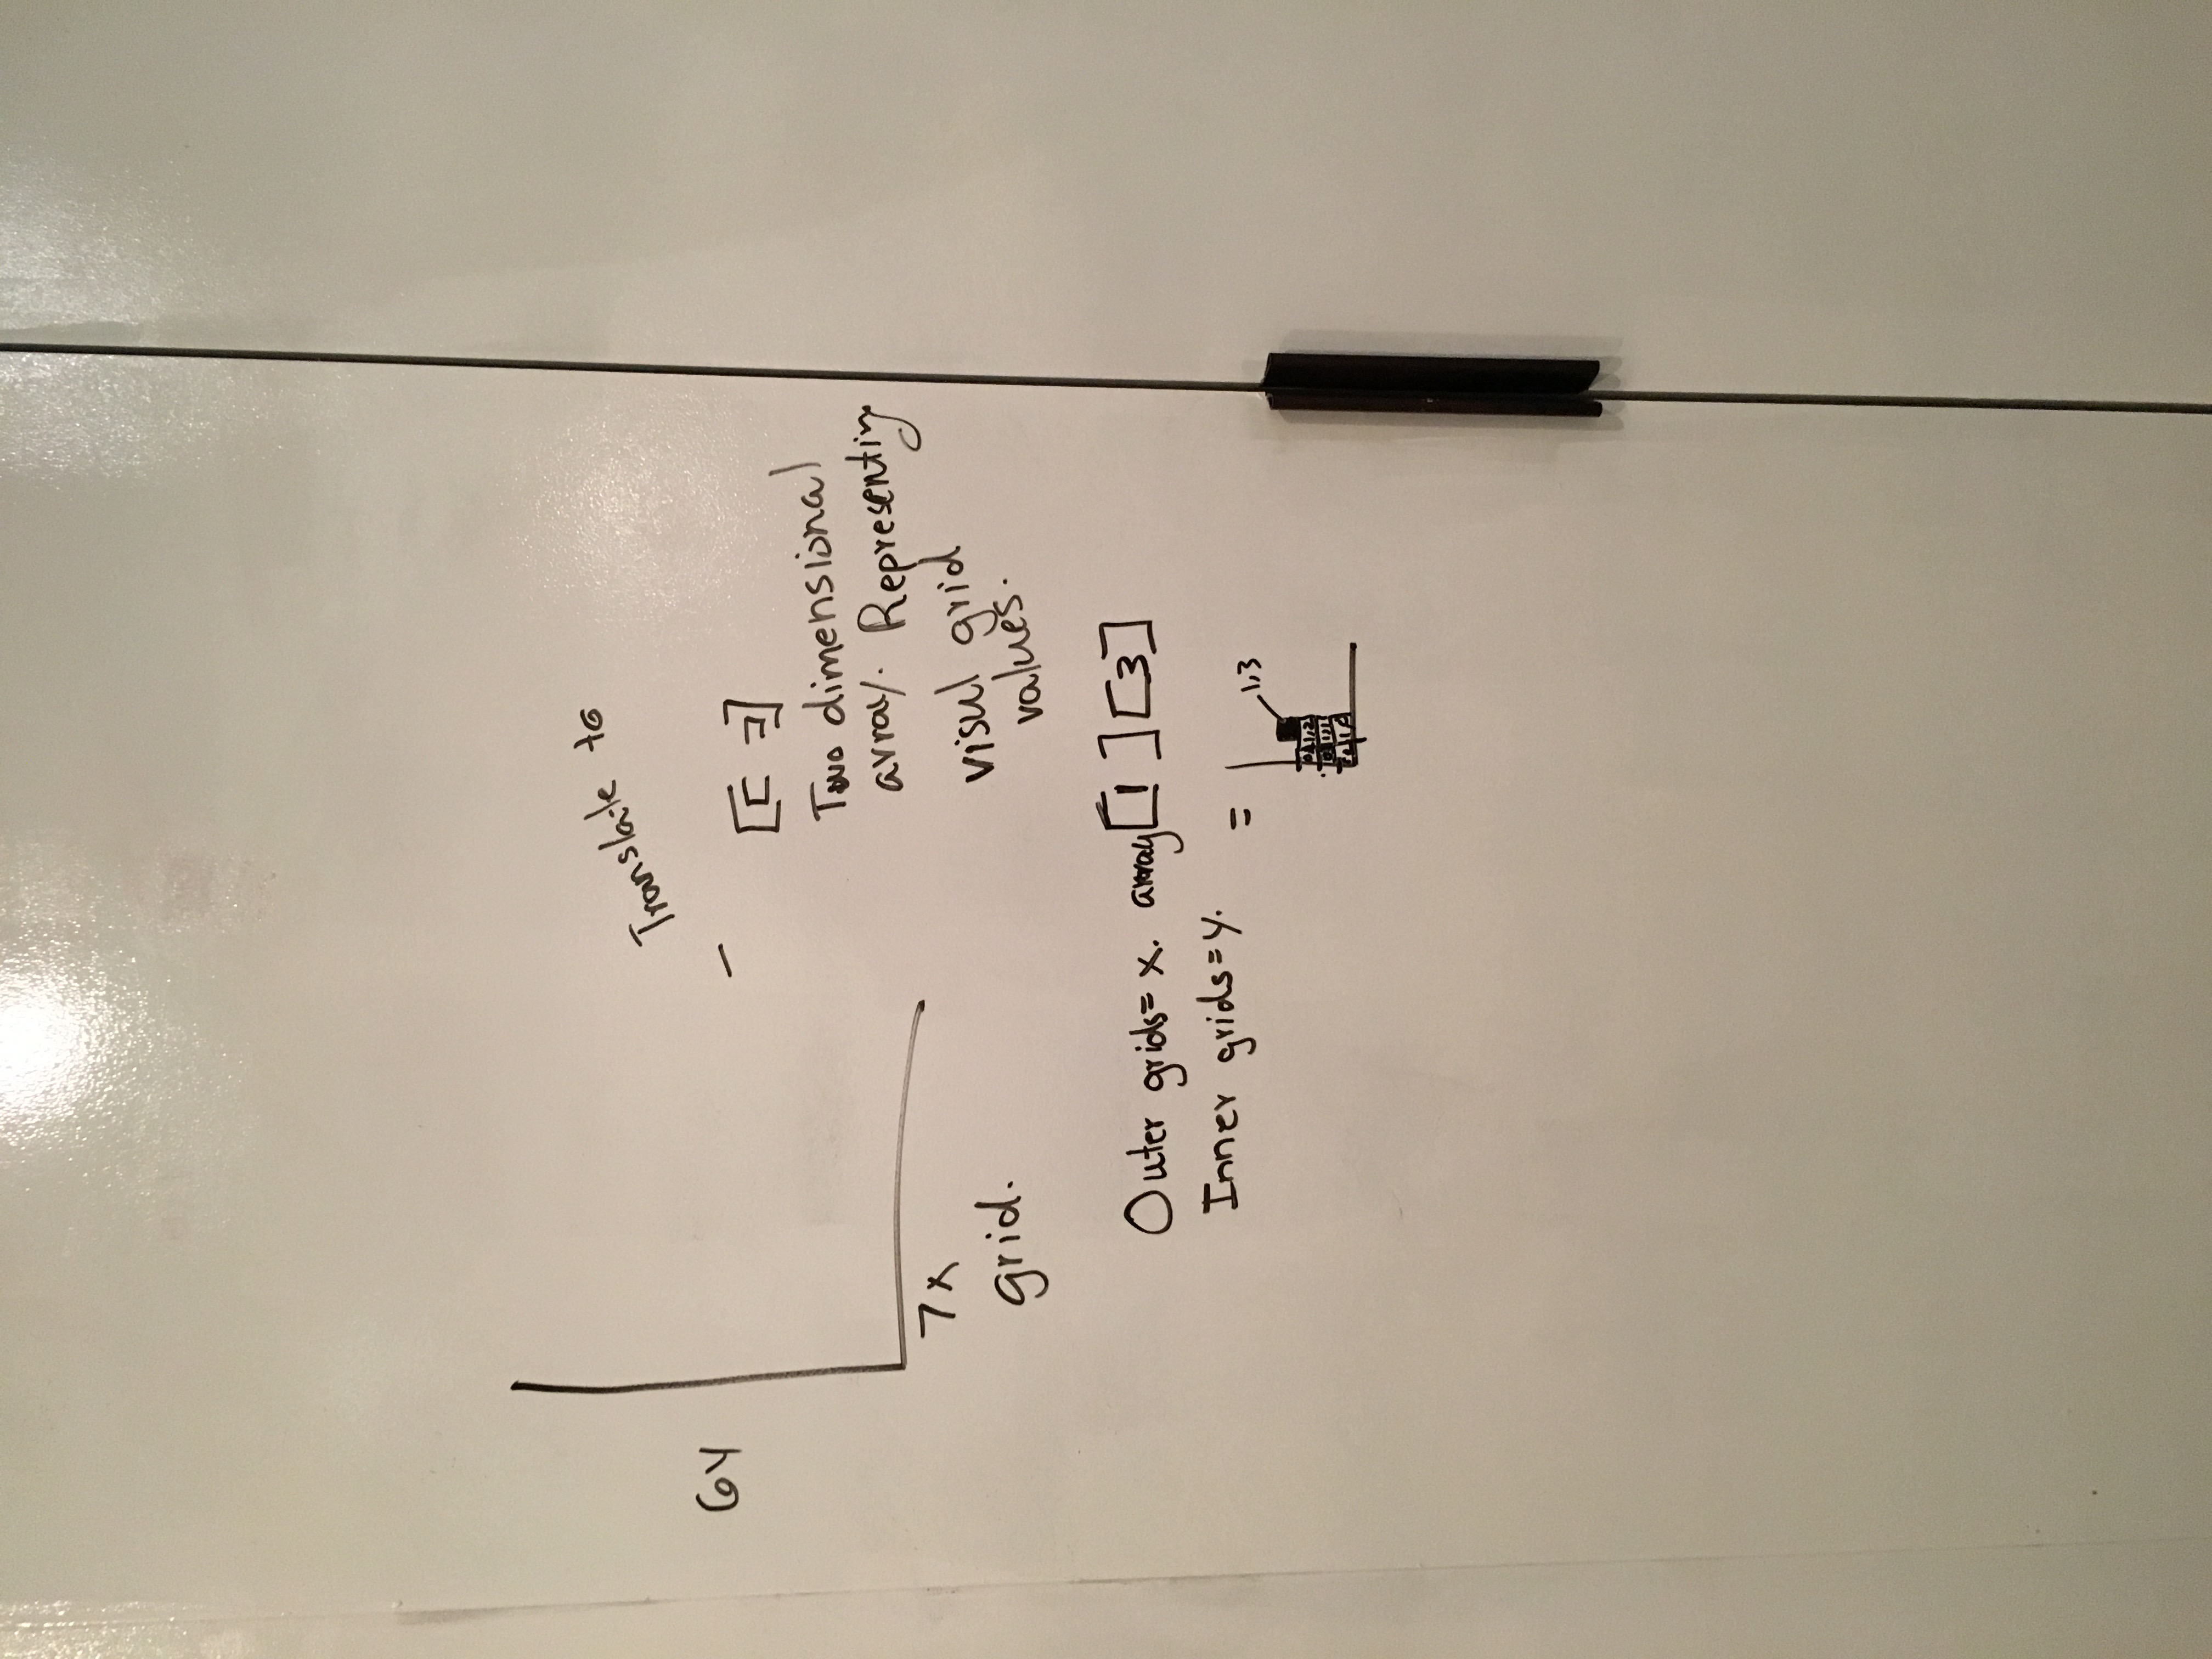 Translate to
6y
[[ ]]
Two dimensional
array. Representing
visul grid
values.
7x
grid.
Outer grids= x. array[1 ][3]
Inner grids=y.
=
1,3
1,2
1,1